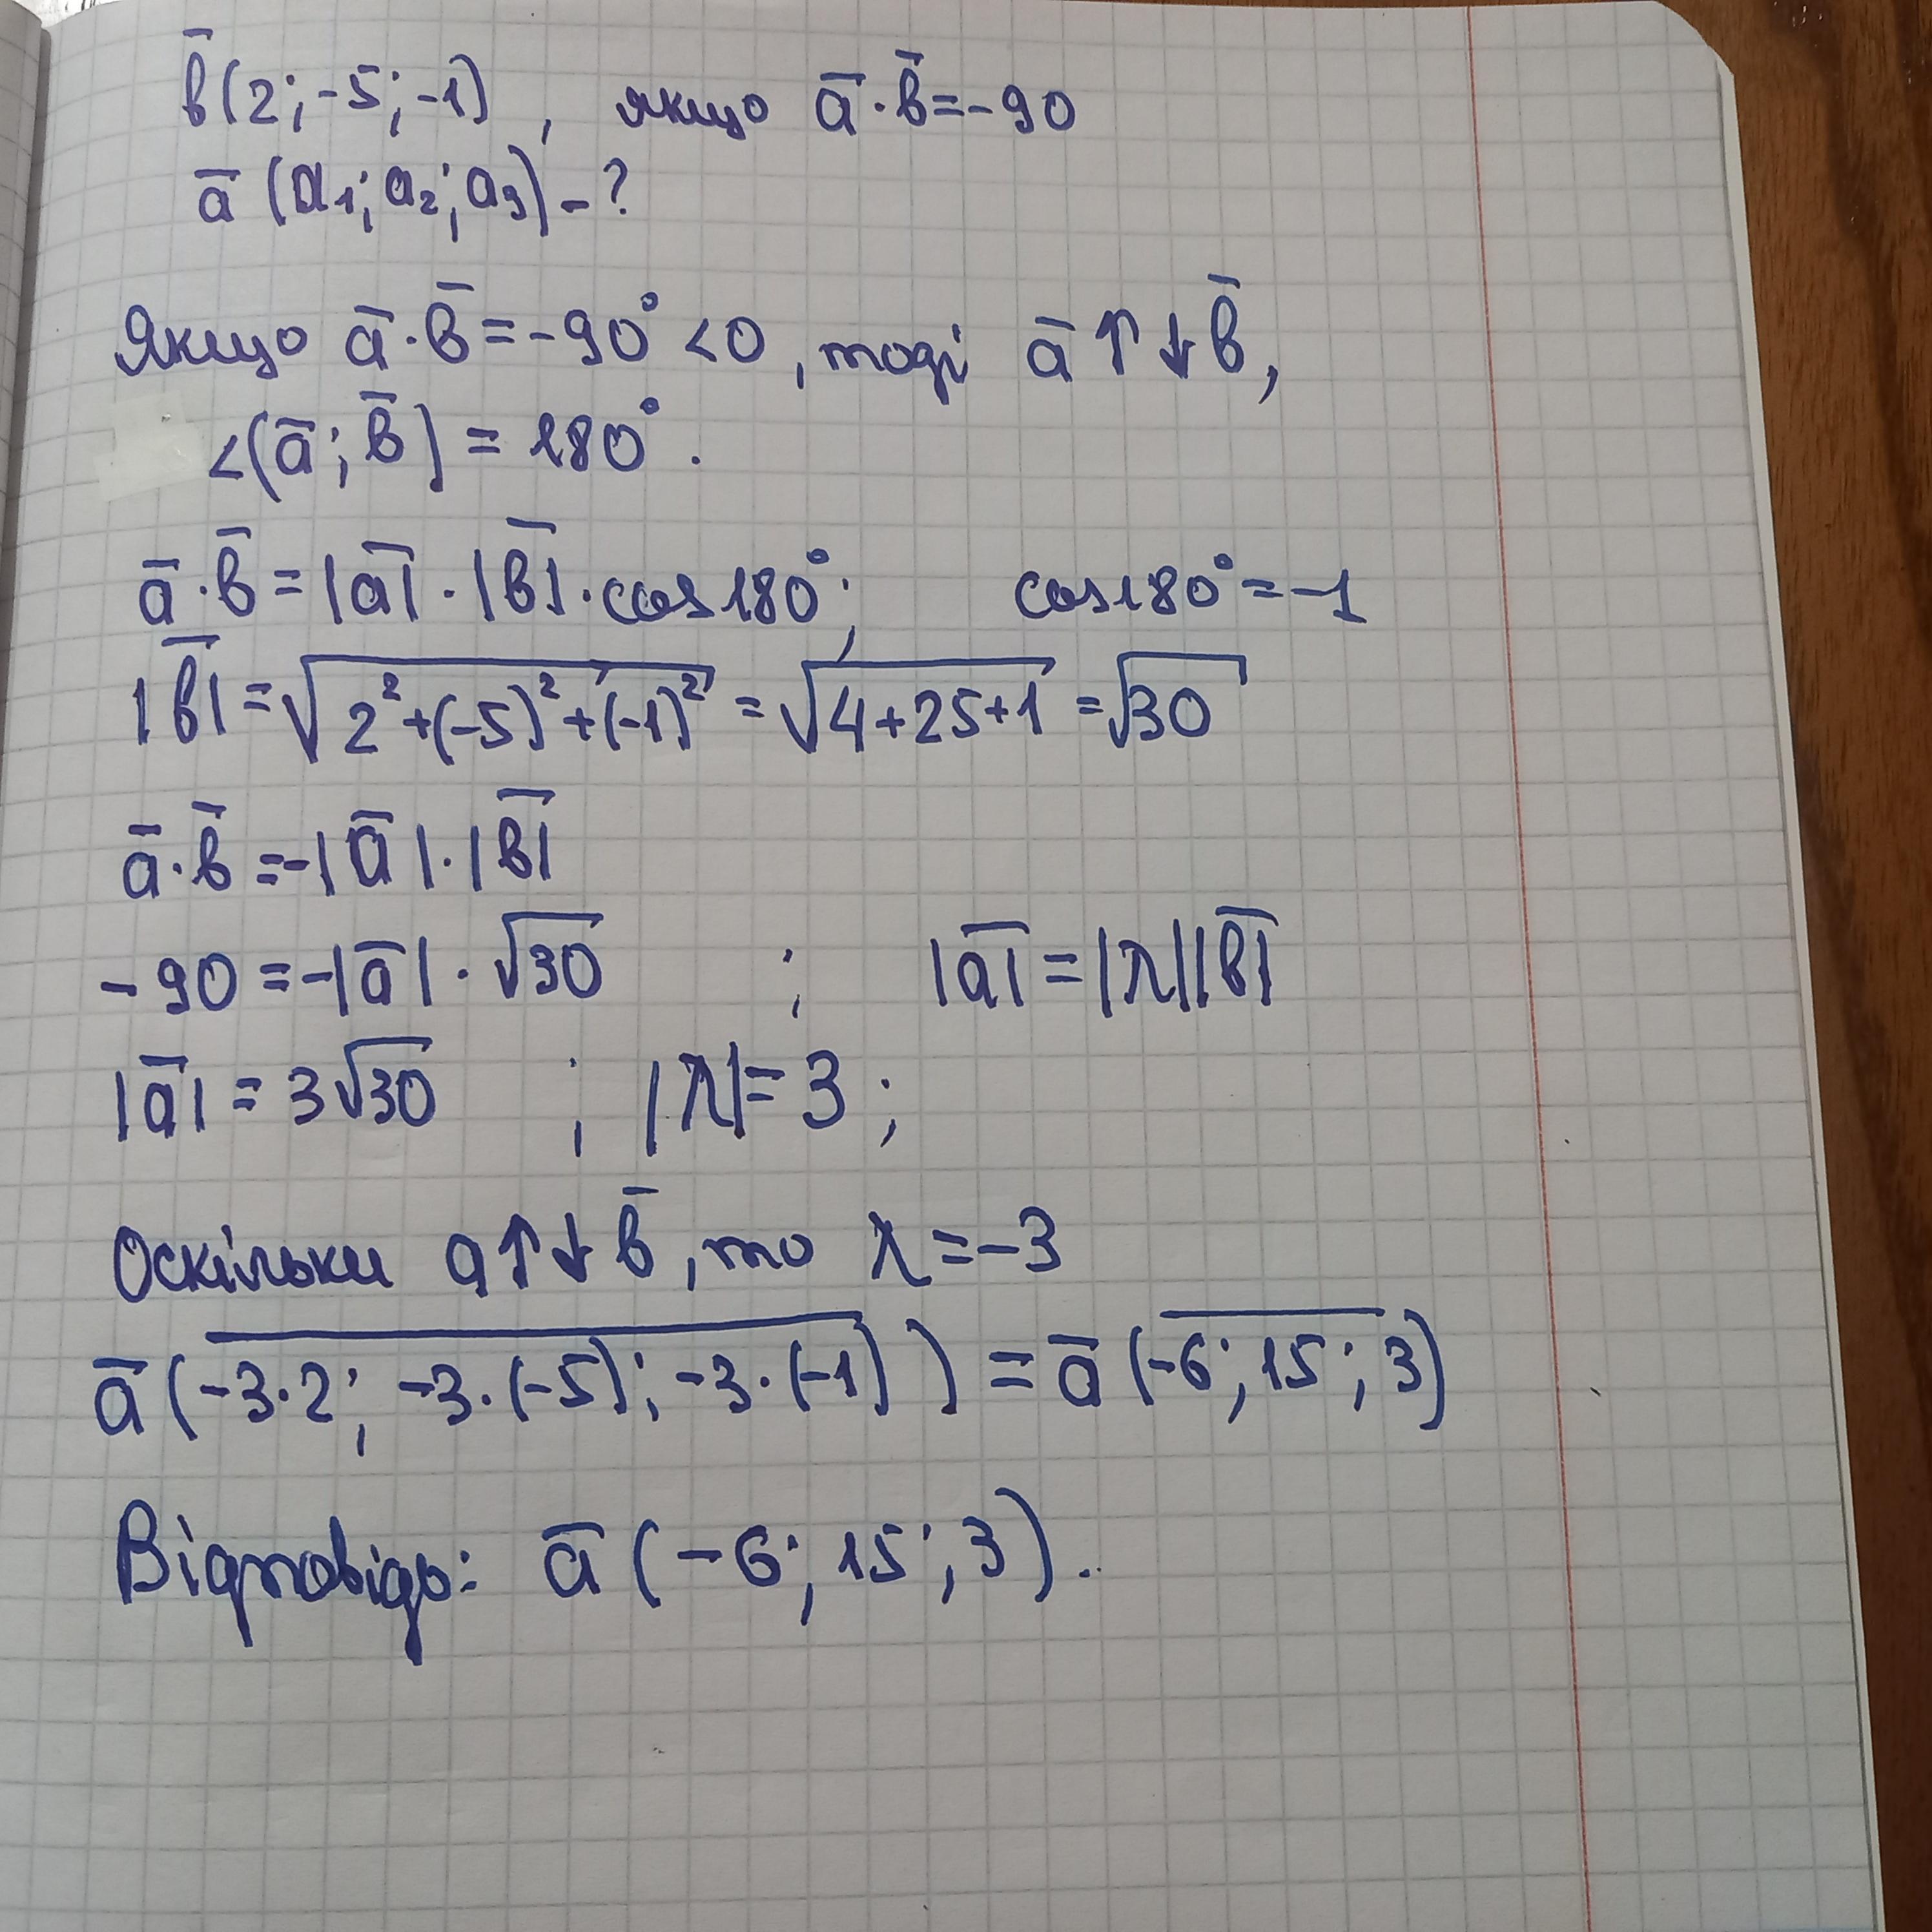 b̅(2; -5; -1), якщо a̅·b̅=-90
a̅ (a₁; a₂; a₃) - ?
Якщо a̅·b̅=-90° <0, тоді a̅↑↓b̅,
<(a̅; b̅) = 180°.
a̅·b̅=|a̅|·|b̅|·cos180°; cos180°=-1
|b̅|=√(2²+(-5)²+(-1)²) = √(4+25+1) =√30
a̅·b̅=-|a̅|·|b̅|
-90=-|a̅|·√30 ; |a̅|=|λ||b̅|
|a̅|= 3√30 ; |λ|=3;
Оскільки a↑↓b̅, то λ=-3
a̅(-3·2; -3·(-5); -3·(-1)) = a̅(-6; 15; 3)
Відповідь: a̅ (-6; 15; 3).